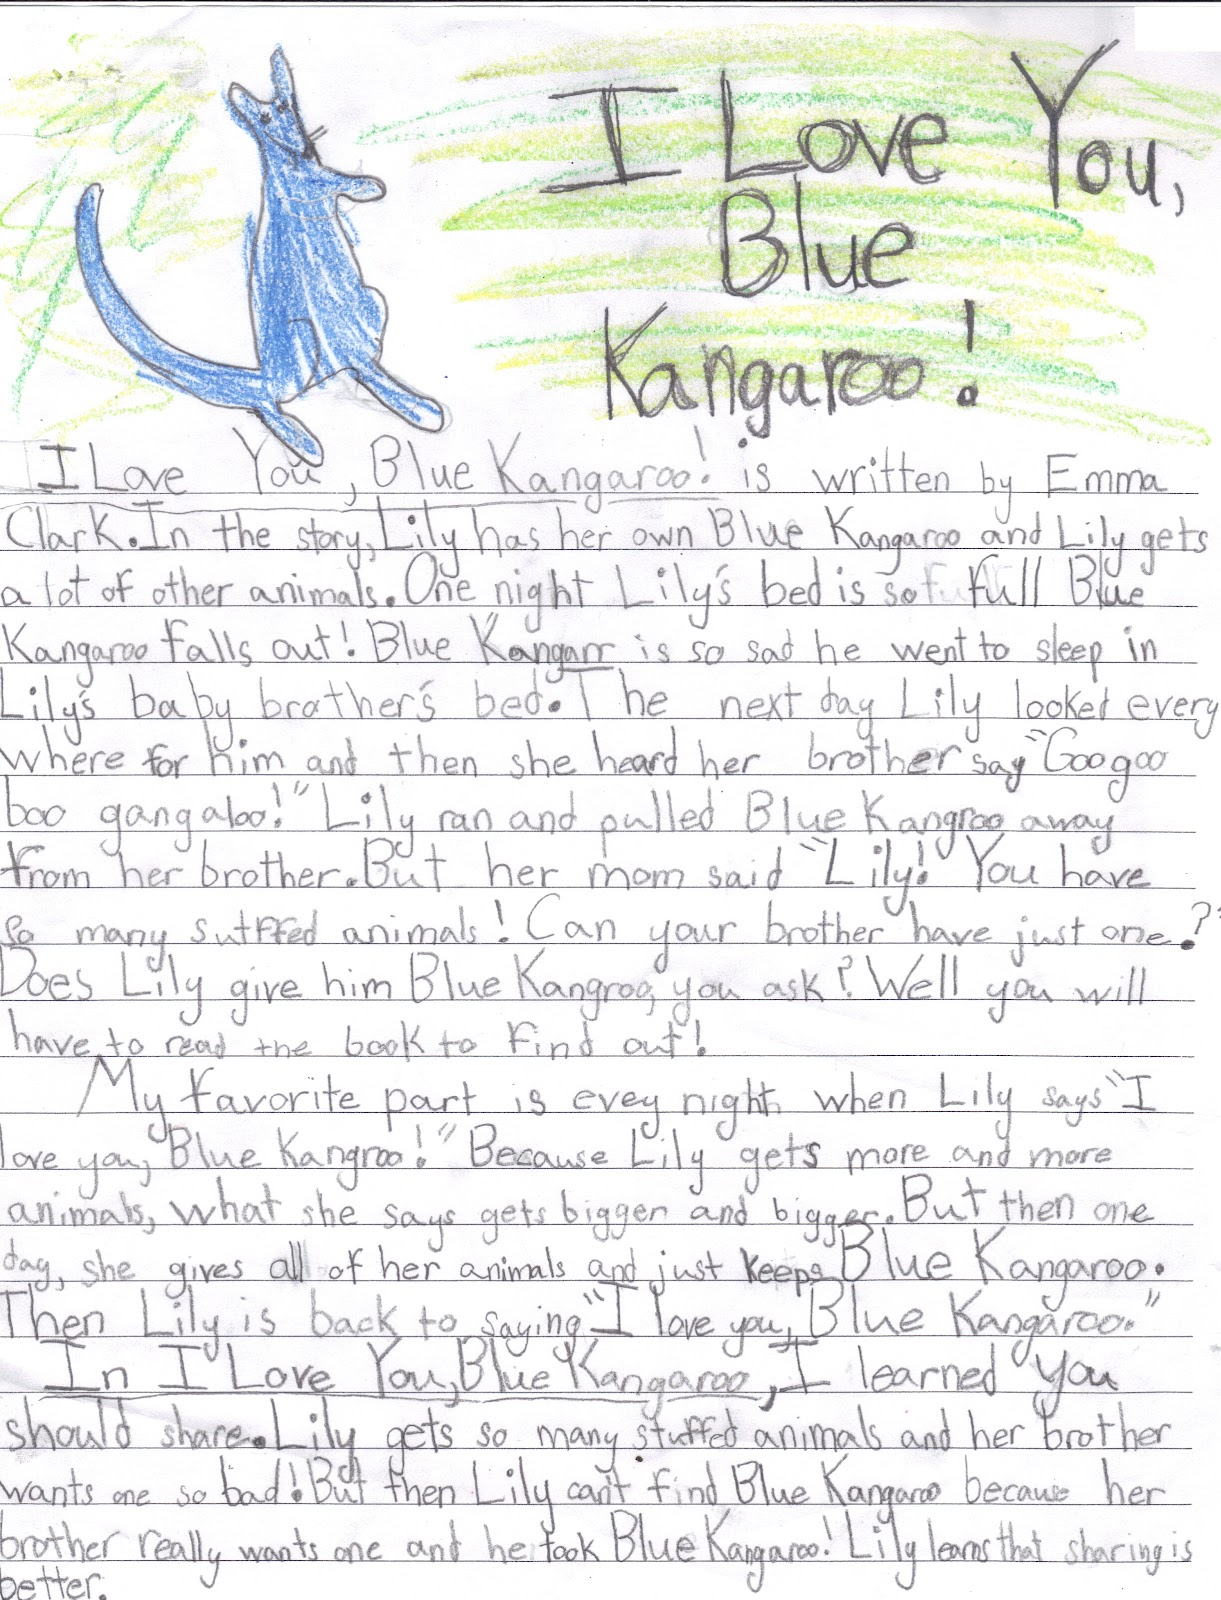 I Love You,
Blue
Kangaroo!
I Love You, Blue Kangaroo! is written by Emma
Clark. In the story, Lily has her own Blue Kangaroo and Lily gets
a lot of other animals. One night Lily's bed is so full Blue
Kangaroo falls out! Blue Kangarr is so sad he went to sleep in
Lily's baby brother's bed. The next day Lily looked every
where for him and then she heard her brother say "Goo goo
boo gangaloo!" Lily ran and pulled Blue Kangroo away
from her brother. But her mom said "Lily! You have
so many sutffed animals! Can your brother have just one.?"
Does Lily give him Blue Kangroo, you ask? Well you will
have to read the book to find out!
My favorite part is evey night when Lily says "I
love you, Blue Kangroo!" Because Lily gets more and more
animals, what she says gets bigger and bigger. But then one
day, she gives all of her animals and just keeps Blue Kangaroo.
Then Lily is back to saying "I love you, Blue Kangaroo."
In I Love You, Blue Kangaroo, I learned you
should share. Lily gets so many stuffed animals and her brother
wants one so bad! But then Lily can't find Blue Kangaroo because her
brother really wants one and he took Blue Kangaroo! Lily learns that sharing is
better.